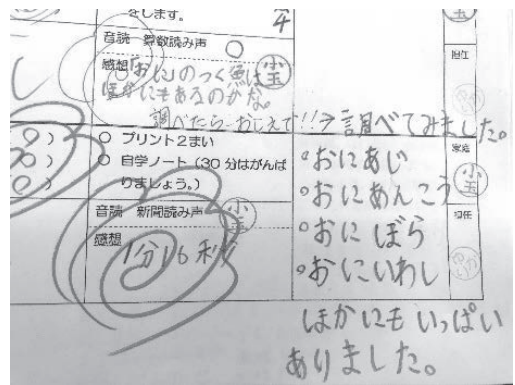 をします。
4
音読 算数読み声
○
感想「おに」のつく魚は
ほかにもあるのかな。
調べたらおしえて!!→調べてみました。
○ プリント2まい
○ 自学ノート(30分はがんば
りましょう。)
音読 新聞読み声
感想
1分16秒
小玉
担任
家庭
小玉
担任
。おにあじ
。おにあんこう
。おにぼら
。おにいわし
ほかにもいっぱい
ありました。